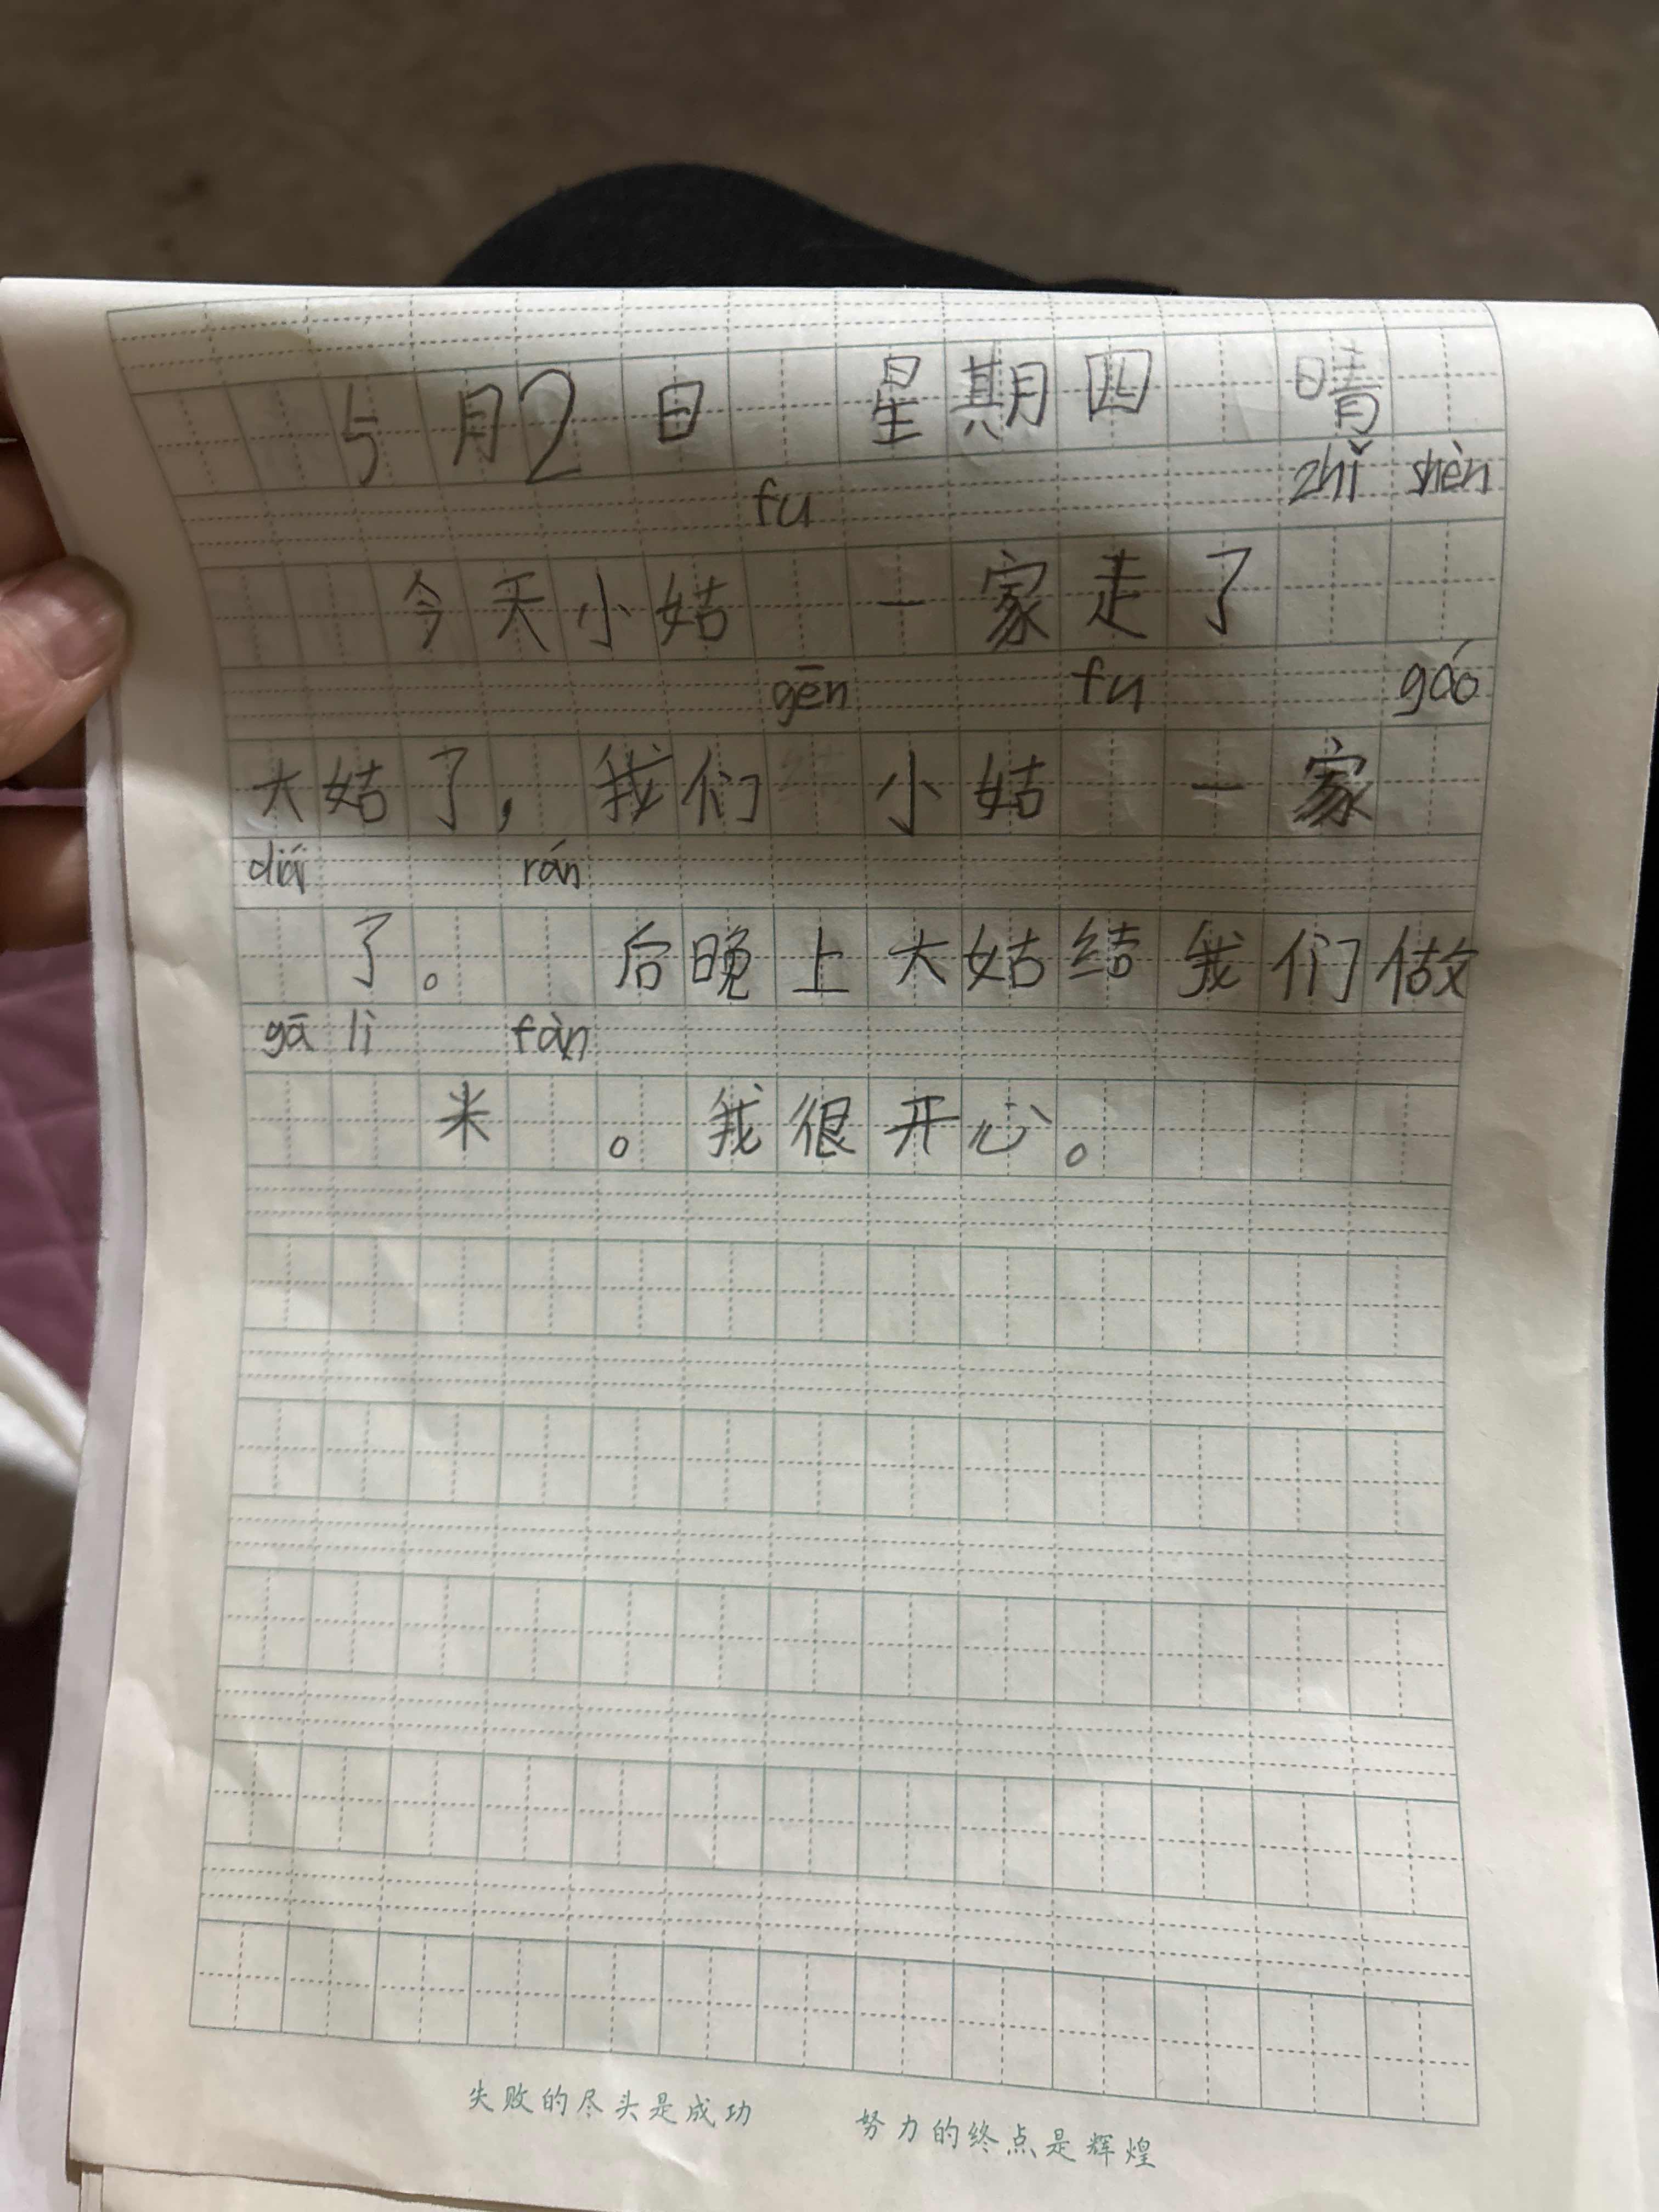 5月2日 星期四 晴
fu zhǐ shèn
今天小姑 一家走了
gēn fu gáo
大姑了，我们 小姑 一家
diái rán
了。 后晚上大姑结我们做
gā lì fàn
米 。我很开心。
失败的尽头是成功 努力的终点是辉煌